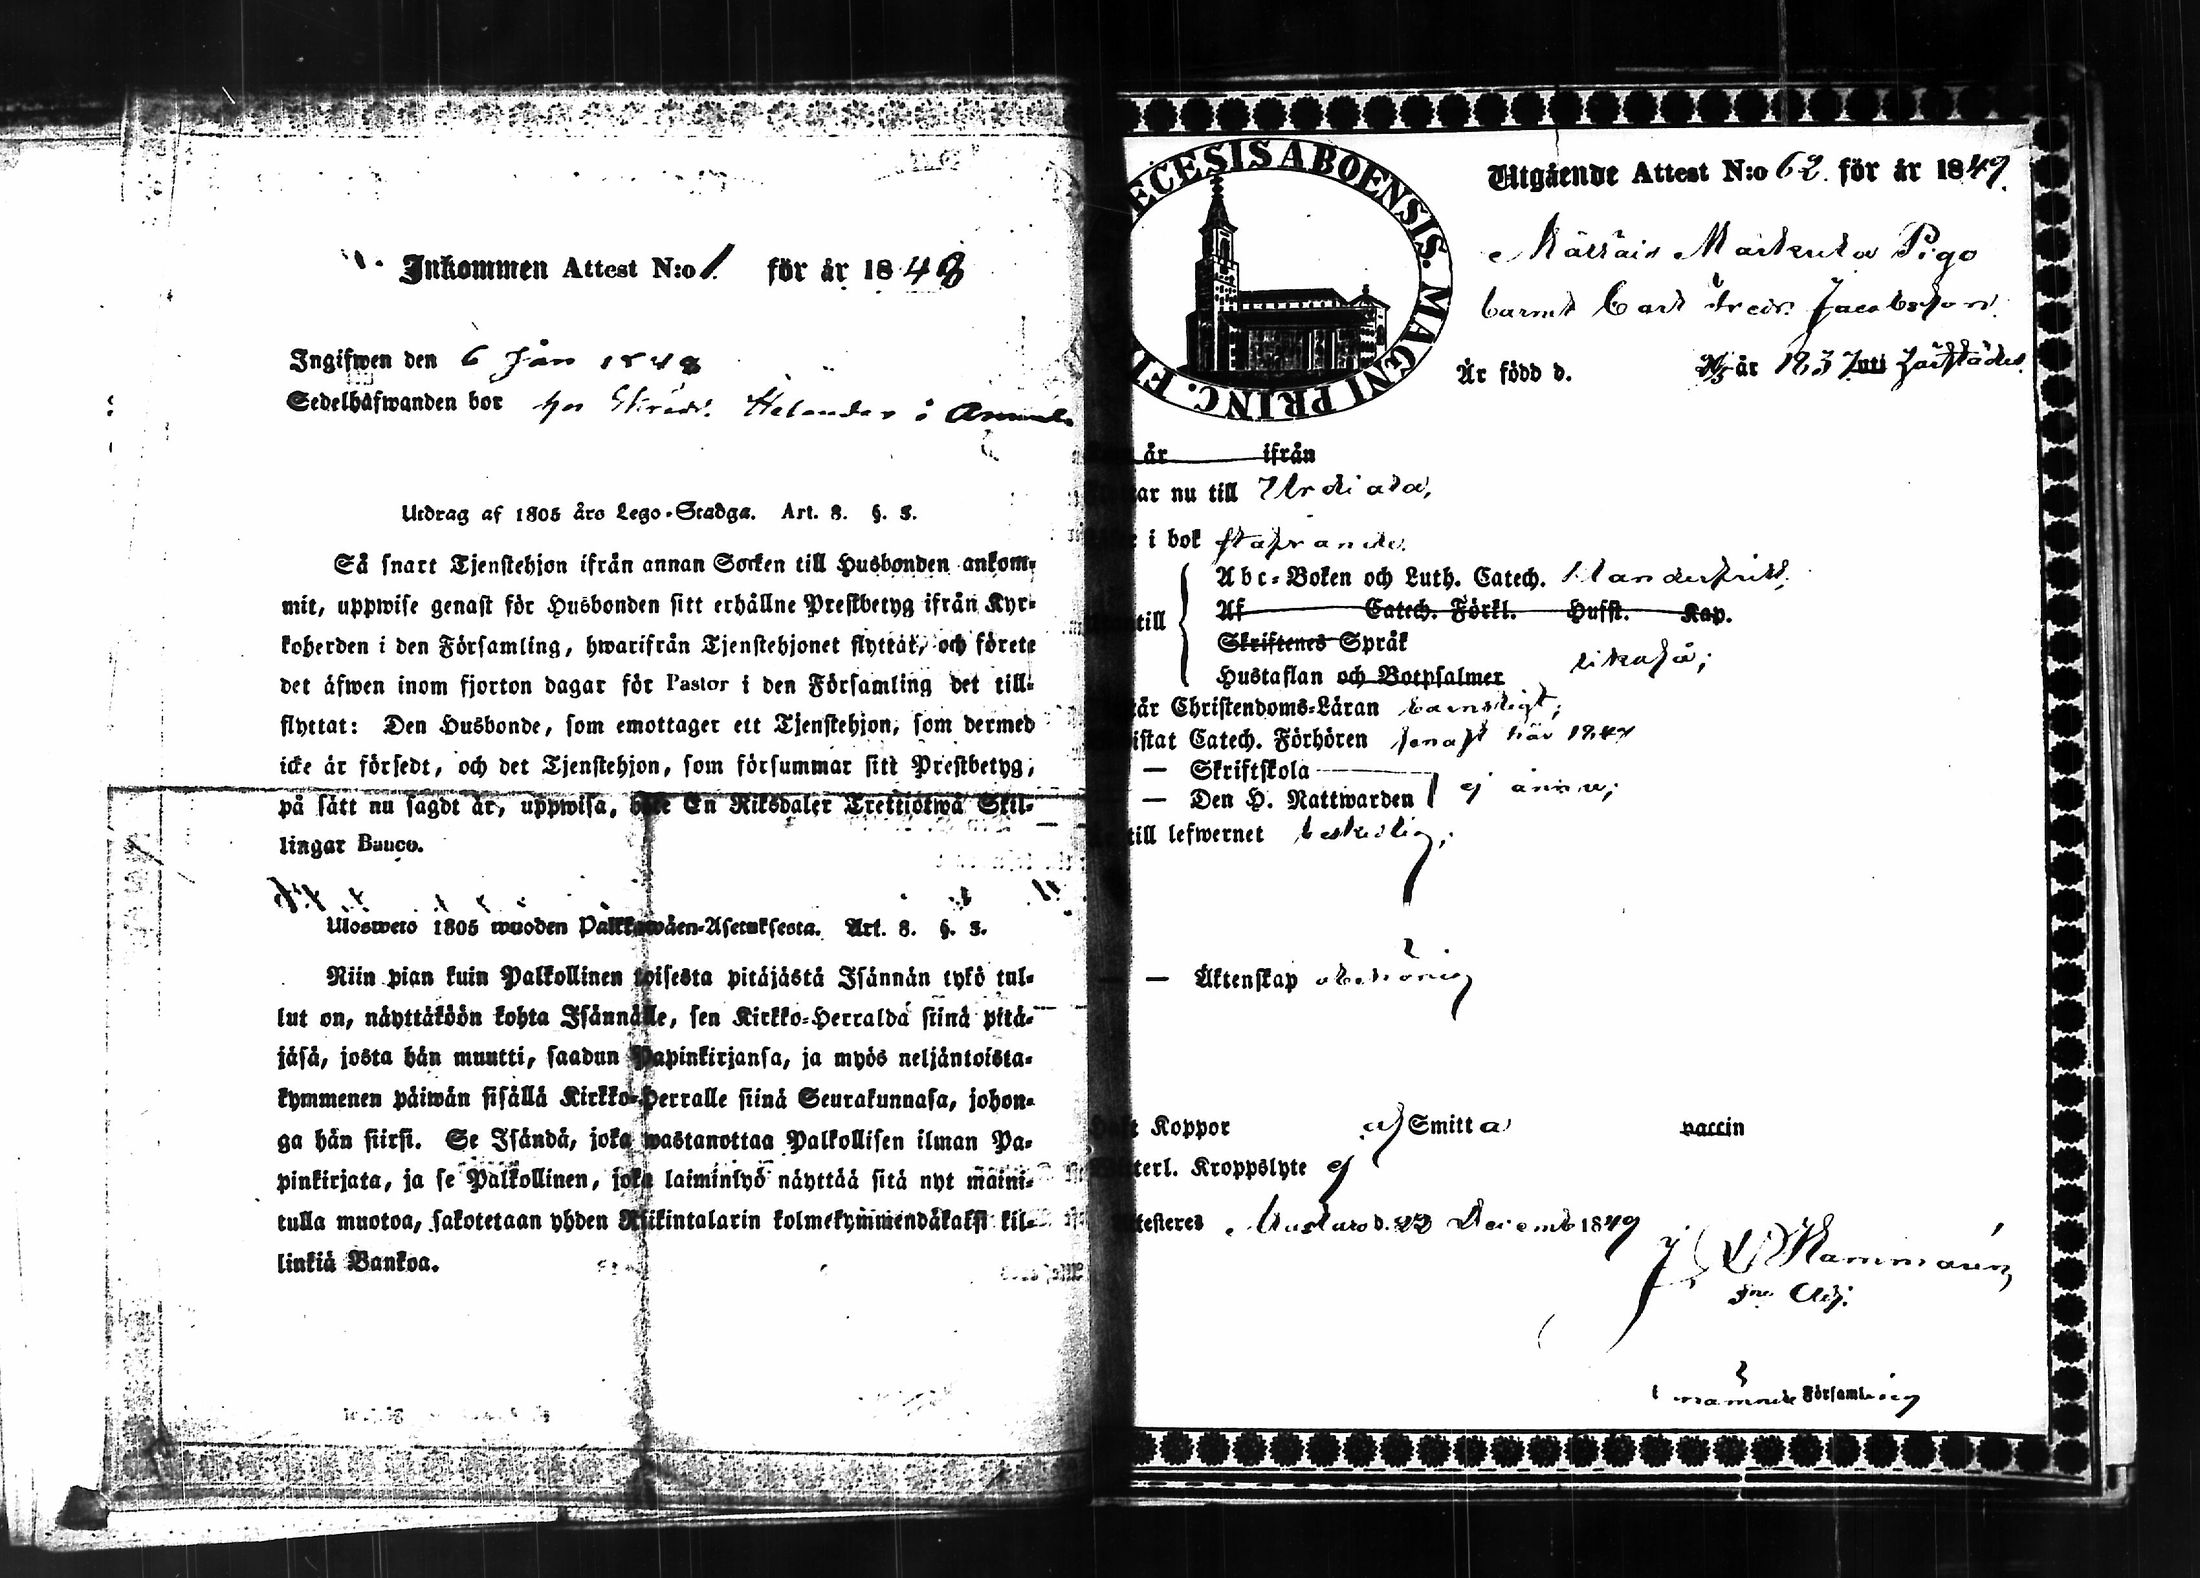 Inkommen Attest N:o 1. för år 1848
Ingifwen den 6 Jan 1848
Sedelhafwanden bor hos Skrädd. Helander i
Utdrag af 1805 års Lego-Stadga. Art. 8. §. 3.
Så snart Tjenstehjon ifrån annan Socken till Husbonden ankom-
mit, uppwise genast för Husbonden sitt erhållne Prestbetyg ifrån Kyr-
koherden i den Församling, hwarifrån Tjenstehjonet flyttat, och förete
det äfwen inom fjorton dagar för Pastor i den Församling det till-
flyttat: Den Husbonde, som emottager ett Tjenstehjon, som dermed
icke är försedt, och det Tjenstehjon, som försummar sitt Prestbetyg,
på sätt nu sagdt är, uppwisa, böte En Riksdaler Trettiotwå Skil-
lingar Banco.
Ulosweto 1805 wuoden Palkkawäen-Asetuksesta. Art. 8. §. 3.
Niin pian kuin Palkollinen toisesta pitäjästä Isännän tykö tul-
lut on, näyttäköön kohta Isännälle, sen Kirkko-Herralda siinä pitä-
jäsä, josta hän muutti, saadun Papinkirjansa, ja myös neljäntoista-
kymmenen päiwän sisällä Kirkko-Herralle siinä Seurakunnasa, johon-
ga hän siirsi. Se Isändä, joka wastanottaa Palkollisen ilman Pa-
pinkirjata, ja se Palkollinen, joka laiminlyö näyttää sitä nyt maini-
tulla muotoa, sakotetaan yhden Riikintalarin kolmekymmendäkaksi kil-
linkiä Bankoa.
ECESIS ABOENSIS. MAGNI PRINC. FI
Utgående Attest N:o 62. för år 1849.
Pigo
barnet Carl Fredr. Jacobsson
Är född d. år 1837 uti
år ifrån
ar nu till Urdiala,
i bok
till
Abc-Boken och Luth. Catech.
Af Catech. Förkl. Hufst. Kap.
Skriftenes Språk
Hustaflan och Botpsalmer likaså;
är Christendoms-Läran barnsligt;
istat Catech. Förhören senast här 1849
— Skriftskola
— Den H. Nattwarden ej ännu;
till lefwernet beskedlig;
— — Äktenskap obehörig
Koppor af Smitta vaccin
terl. Kroppslyte ej
testeres d. 22 Decemb 1849
Adj.
i nämnde Församling